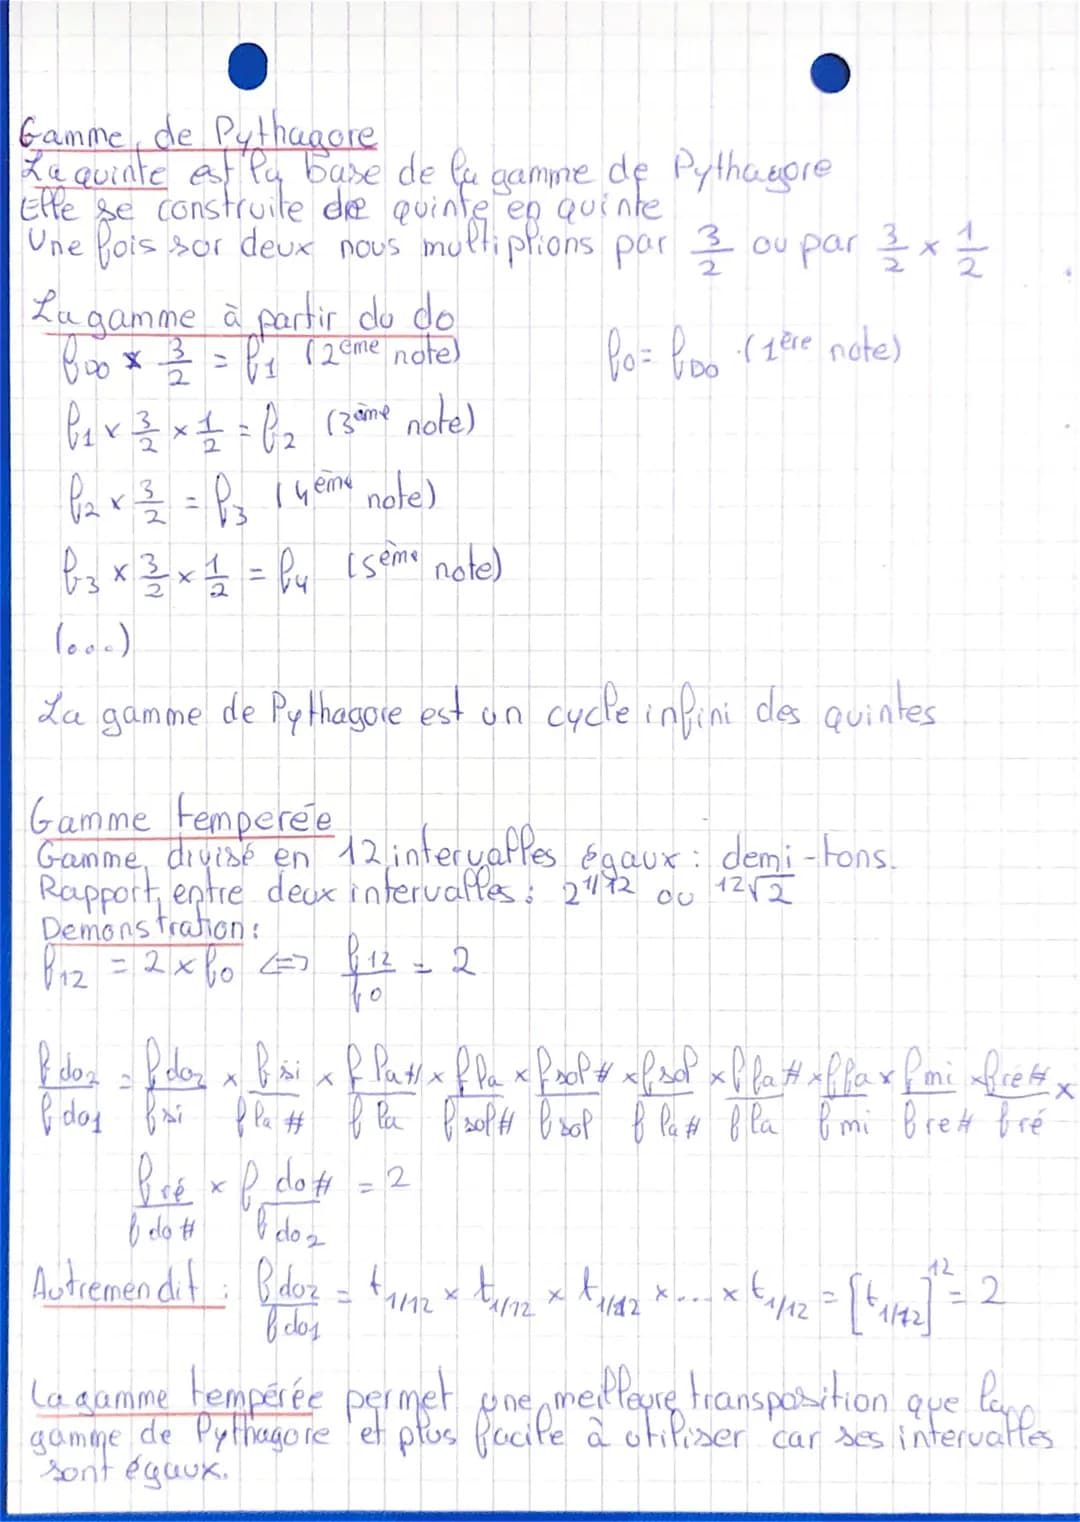 Gamme de Pythagore
La quinte est la base de la gamme de Pythagore
Elle se construite de quinte en quinte
Une fois sur deux nous multiplions par 3/2 ou par 3/2 × 1/2
La gamme à partir du do
f_DO × 3/2 = f_1 (2ème note)
f_0 = f_DO (1ère note)
f_1 × 3/2 × 1/2 = f_2 (3ème note)
f_2 × 3/2 = f_3 (4ème note)
f_3 × 3/2 × 1/2 = f_4 (5ème note)
(...)
La gamme de Pythagore est un cycle infini des quintes
Gamme temperée
Gamme divisé en 12 intervalles égaux : demi-tons.
Rapport entre deux intervalles : 2^1/12 ou 12√2
Demonstration :
f_12 = 2 × f_0 <=> f_12/f_0 = 2
f do2/f do1 = f do2/f si × f si/f la# × f la#/f la × f la/f sol# × f sol#/f sol × f sol/f fa# × f fa#/f fa × f fa/f mi × f mi/f re# × f re#/f ré ×
f ré/f do# × f do#/f do2 = 2
Autremendit : f do2/f do1 = t_1/12 × t_1/12 × t_1/12 × ... × t_1/12 = [t_1/12]^12 = 2
La gamme tempérée permet une meilleure transposition que la
gamme de Pythagore et plus facile à utiliser car ses intervalles
sont égaux.